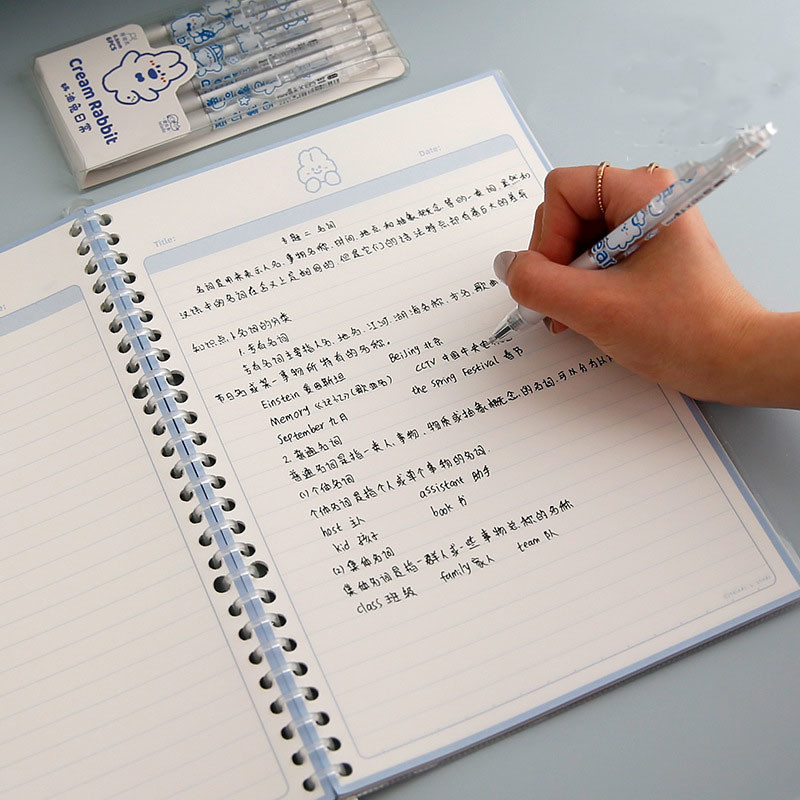 Cream Rabbit
奶油兔日常
6PCS
Title:
Date:
专题二 名词
名词是用来表示人名、事物名称、时间、地点和抽象概念等的一类词,虽然和
汉语中的名词在含义上是相同的,但是它们的语法特点却有着巨大的差异
知识点1名词的分类
1.专有名词
专有名词主要指人名、地名、江河湖海名称、书名、歌曲
节日名或某一事物所特有的名称。
Einstein 爱因斯坦 Beijing 北京
Memory 《记忆》(歌曲名) CCTV 中国中央电视
September 九月 the Spring Festival 春节
2.普通名词
普通名词是指一类人、事物、物质或抽象概念的名词,可以分为以
(1)个体名词
个体名词是指个人或单个事物的名词.
host 主人 assistant 助手
kid 孩子 book 书
(2)集体名词
集体名词是指一群人或一些事物总称的名称
class 班级 family 家人 team 队